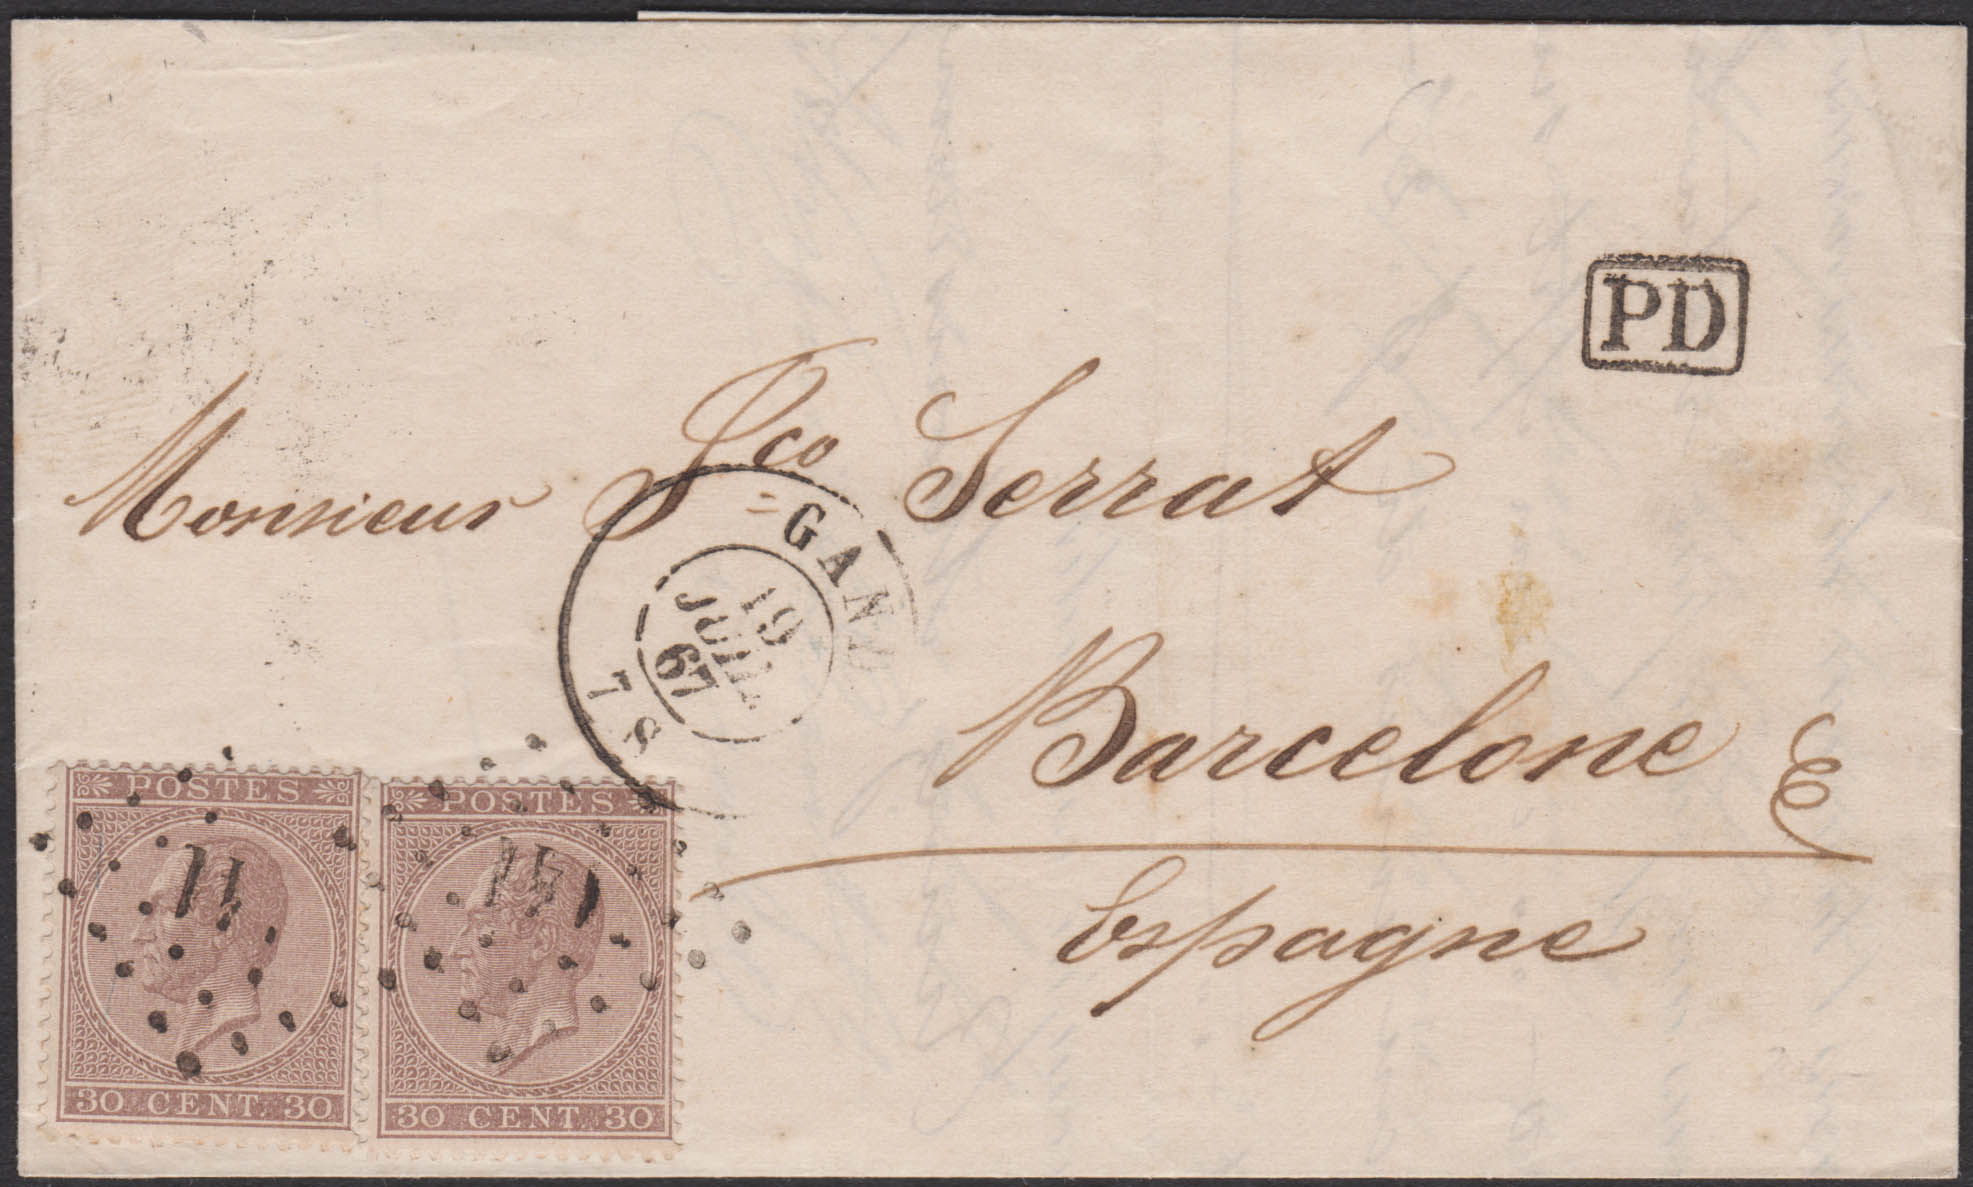 PD
Monsieur Fco Serrat
GAND
19
JUIL
67
7 S
Barcelone
Espagne
POSTES
30 CENT. 30
POSTES
30 CENT. 30